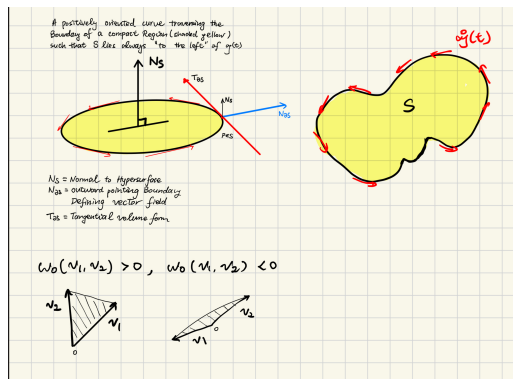 A positively oriented curve traversing the
Boundary of a compact Region (shaded yellow)
such that S lies always "to the left" of g(t)
N_S
T_∂S
N_S
N_∂S
P∈S
g(t)
S
N_S = Normal to Hypersurface
N_∂S = outward pointing Boundary
Defining vector field
T_∂S = Tangential volume form
ω_0(v_1, v_2) > 0 , ω_0(v_1, v_2) < 0
v_2
v_1
0
v_2
v_1
0